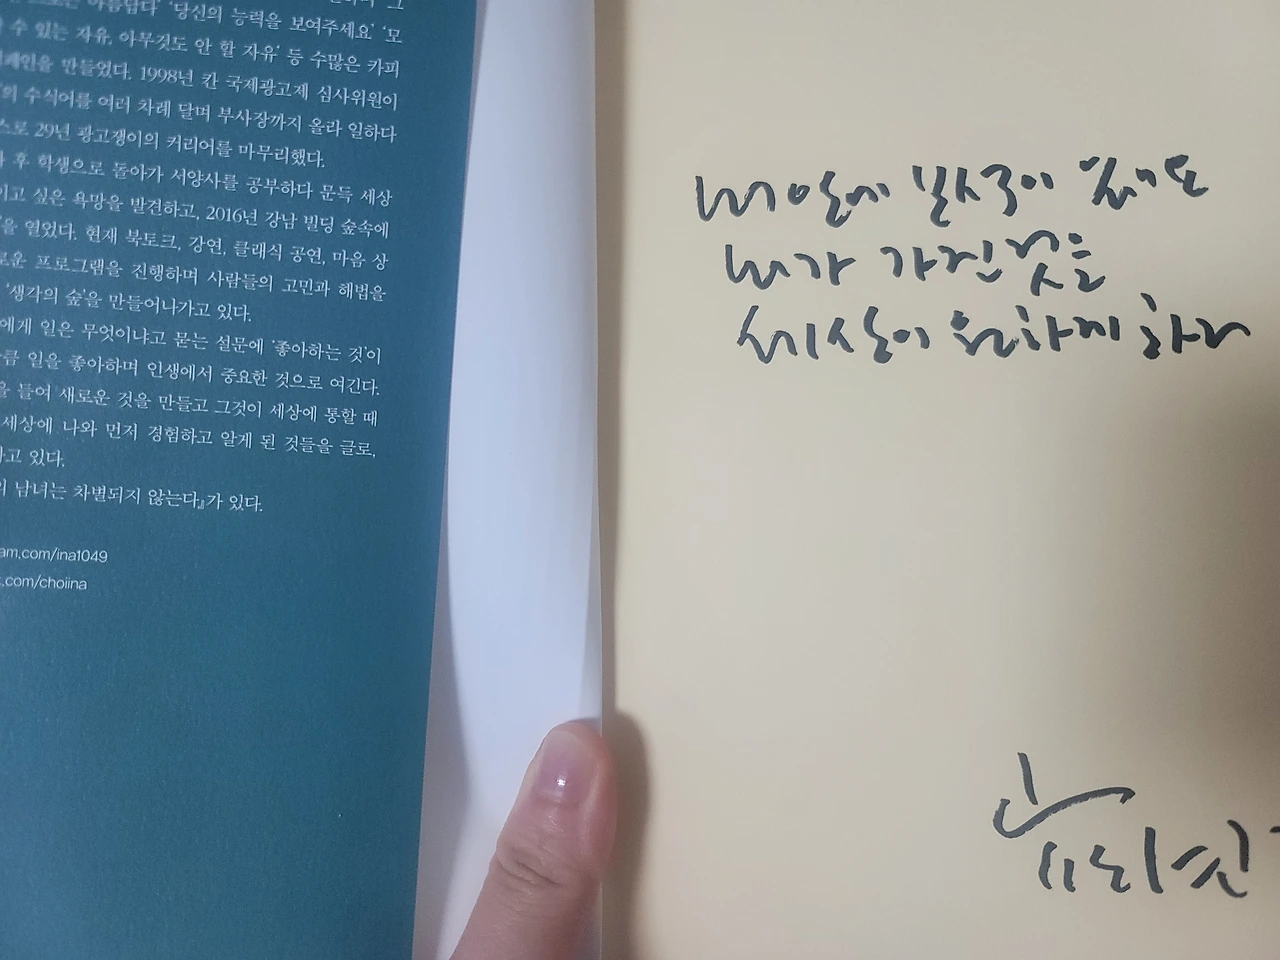 아름답다' '당신의 능력을 보여주세요' '모
수 있는 자유, 아무것도 안 할 자유' 등 수많은 카피
캠페인을 만들었다. 1998년 칸 국제광고제 심사위원이
의 수식어를 여러 차례 달며 부사장까지 올라 일하다
스로 29년 광고쟁이의 커리어를 마무리했다.
후 학생으로 돌아가 서양사를 공부하다 문득 세상
이고 싶은 욕망을 발견하고, 2016년 강남 빌딩 숲속에
을 열었다. 현재 북토크, 강연, 클래식 공연, 마음 상
로운 프로그램을 진행하며 사람들의 고민과 해법을
'생각의 숲'을 만들어나가고 있다.
에게 일은 무엇이냐고 묻는 설문에 '좋아하는 것'이
큼 일을 좋아하며 인생에서 중요한 것으로 여긴다.
을 들여 새로운 것을 만들고 그것이 세상에 통할 때
세상에 나와 먼저 경험하고 알게 된 것들을 글로,
하고 있다.
의 남녀는 차별되지 않는다』가 있다.
am.com/ina1049
.com/choiina
세상에 휘둘리지
내가 가진 것을
세상이 원하게 하라